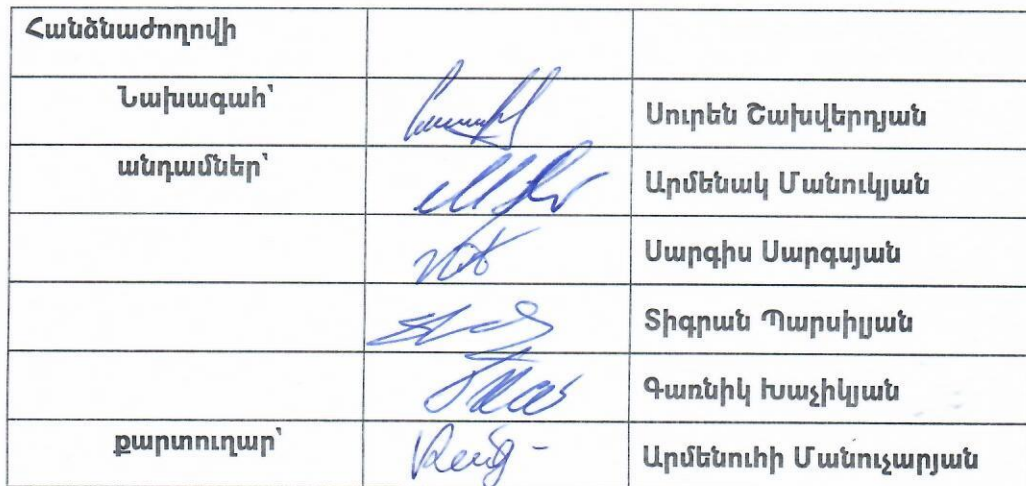 Հանձնաժողովի
Նախագահ՝ Սուրեն Շախվերդյան
անդամներ՝ Արմենակ Մանուկյան
Սարգիս Սարգսյան
Տիգրան Պարսիլյան
Գառնիկ Խաչիկյան
քարտուղար՝ Արմենուհի Մանուչարյան